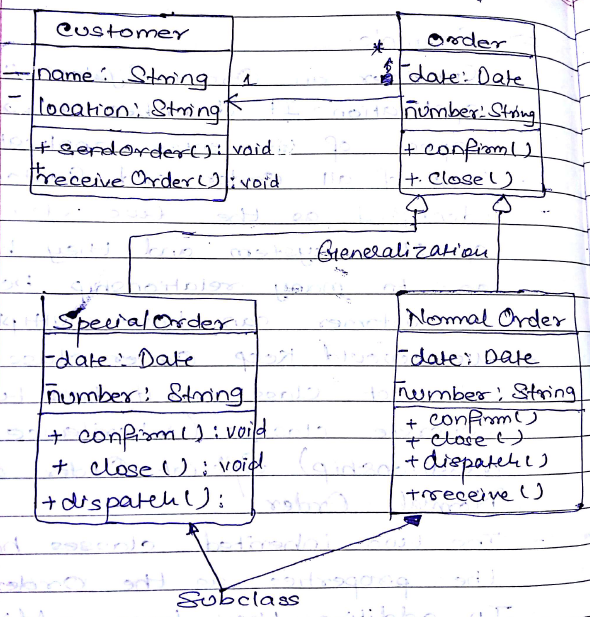 Customer
- name: String
- location: String
+ sendorder(): void
+ receive Order(): void
1
*
Order
- date: Date
- number: String
+ confirm()
+ close()
Generalization
Special Order
- date: Date
- number: String
+ confirm(): void
+ close(): void
+ dispatch():
Normal Order
- date: Date
- number: String
+ confirm()
+ close()
+ dispatch()
+ receive()
Subclass